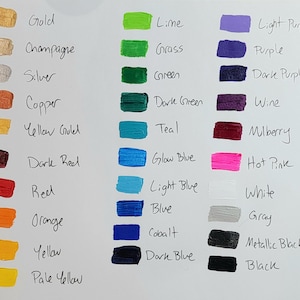 Gold
Champagne
Silver
Copper
Yellow Gold
Dark Red
Red
Orange
Yellow
Pale Yellow
Lime
Grass
Green
Dark Green
Teal
Glow Blue
Light Blue
Blue
Cobalt
Dark Blue
Light Pur
Purple
Dark Purple
Wine
Mulberry
Hot Pink
White
Gray
Metallic Black
Black